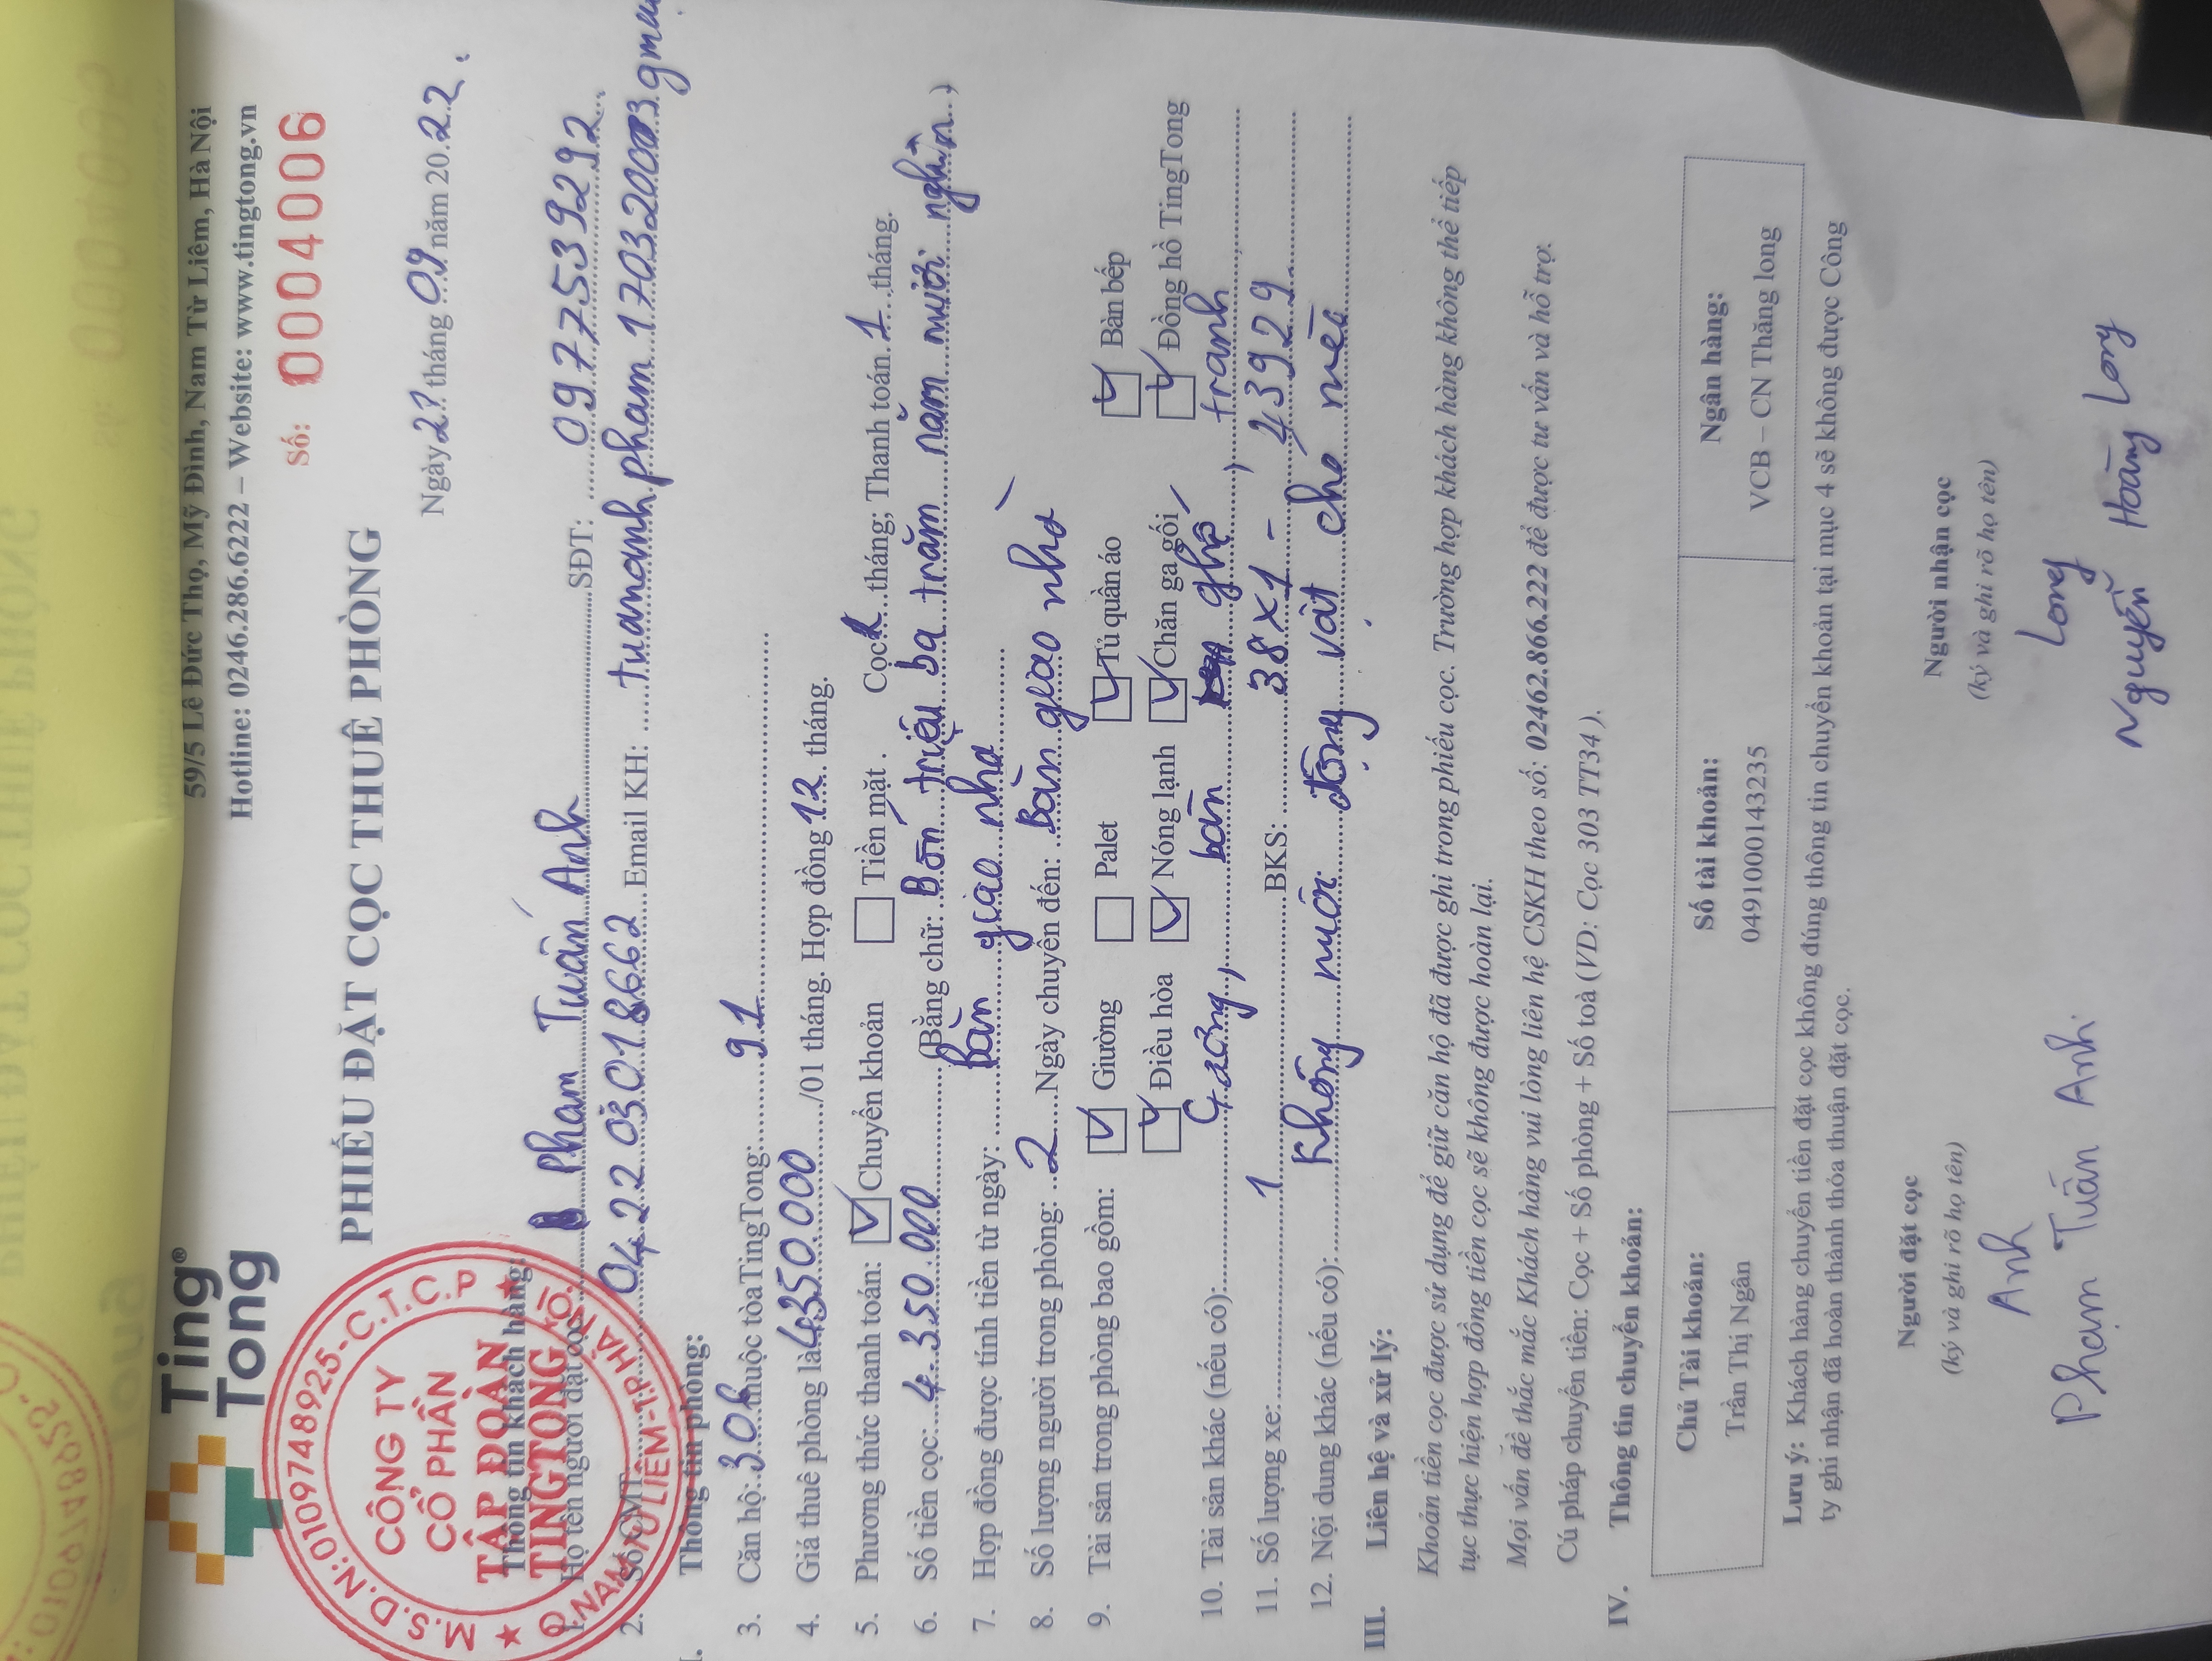 Ting Tong®
59/5 Lê Đức Thọ, Mỹ Đình, Nam Từ Liêm, Hà Nội
Hotline: 0246.286.6222 – Website: www.tingtong.vn
Số: 0004006
PHIẾU ĐẶT CỌC THUÊ PHÒNG
Ngày 27 tháng 09 năm 20.22.
M.S.D.N: 0109748925-C.T.C.P
CÔNG TY
CỔ PHẦN
TẬP ĐOÀN
TINGTONG
Q. NAM TỪ LIÊM-T.P HÀ NỘI
Thông tin khách hàng:
1. Họ tên người đặt cọc: Phạm Tuấn Anh SĐT: 0977539292
2. Số CMT: 042203018662 Email KH: tuananhpham17032003gmai
Thông tin phòng:
3. Căn hộ: 306 thuộc tòa TingTong: 91
4. Giá thuê phòng là 4350.000 /01 tháng. Hợp đồng 12 tháng.
5. Phương thức thanh toán: Chuyển khoản Tiền mặt. Cọc 1 tháng; Thanh toán 1 tháng.
6. Số tiền cọc: 4.350.000 (Bằng chữ: Bốn triệu ba trăm năm mươi nghìn)
7. Hợp đồng được tính tiền từ ngày: bàn giao nhà
8. Số lượng người trong phòng: 2 Ngày chuyển đến: Bàn giao nhà
9. Tài sản trong phòng bao gồm: Giường Palet Tủ quần áo Bàn bếp
Điều hòa Nóng lạnh Chăn ga gối Đồng hồ TingTong
10. Tài sản khác (nếu có): bàn ghế, tranh
11. Số lượng xe: 1 BKS: 38X1 - 43929
12. Nội dung khác (nếu có): Không nuôi động vật chó mèo
III. Liên hệ và xử lý:
Khoản tiền cọc được sử dụng để giữ căn hộ đã được ghi trong phiếu cọc. Trường hợp khách hàng không thể tiếp
tục thực hiện hợp đồng tiền cọc sẽ không được hoàn lại.
Mọi vấn đề thắc mắc Khách hàng vui lòng liên hệ CSKH theo số: 02462.866.222 để được tư vấn và hỗ trợ.
Cú pháp chuyển tiền: Cọc + Số phòng + Số toà (VD: Cọc 303 TT34).
IV. Thông tin chuyển khoản:
Chủ Tài khoản: Số tài khoản: Ngân hàng:
Trần Thị Ngân 0491000143235 VCB – CN Thăng long
Lưu ý: Khách hàng chuyển tiền đặt cọc không đúng thông tin chuyển khoản tại mục 4 sẽ không được Công
ty ghi nhận đã hoàn thành thỏa thuận đặt cọc.
Người đặt cọc Người nhận cọc
(ký và ghi rõ họ tên) (ký và ghi rõ họ tên)
Anh Long
Phạm Tuấn Anh Nguyễn Hoàng Long